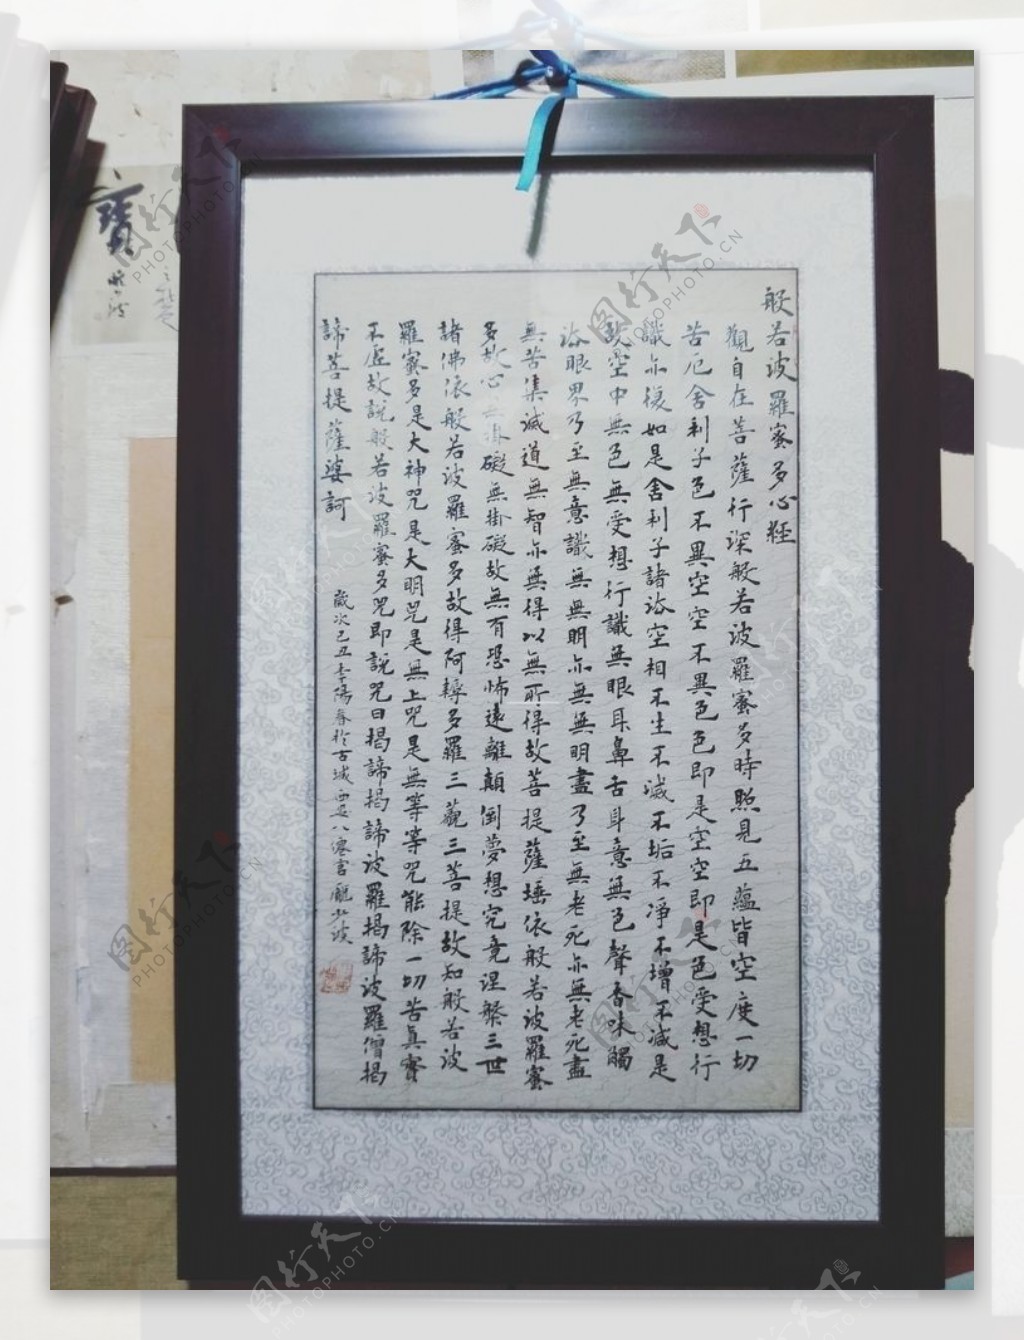 般若波羅蜜多心経
觀自在菩薩行深般若波羅蜜多時照見五蘊皆空度一切
苦厄舍利子色不異空空不異色色即是空空即是色受想行
識亦復如是舍利子諸法空相不生不滅不垢不凈不增不減是
故空中無色無受想行識無眼耳鼻舌身意無色聲香味觸
法眼界乃至無意識無無明亦無無明盡乃至無老死亦無老死盡
無苦集滅道無智亦無得以無所得故菩提薩埵依般若波羅蜜
多故心無掛礙無掛礙故無有恐怖遠離顛倒夢想究竟涅槃三世
諸佛依般若波羅蜜多故得阿耨多羅三藐三菩提故知般若波
羅蜜多是大神咒是大明咒是無上咒是無等等咒能除一切苦真實
不虛故說般若波羅蜜多咒即說咒曰揭諦揭諦波羅揭諦波羅僧揭
諦菩提薩婆訶
歲次己丑季陽春於古城西安八僊宮龐少波
寶
图行天下
PHOTOPHOTO.CN